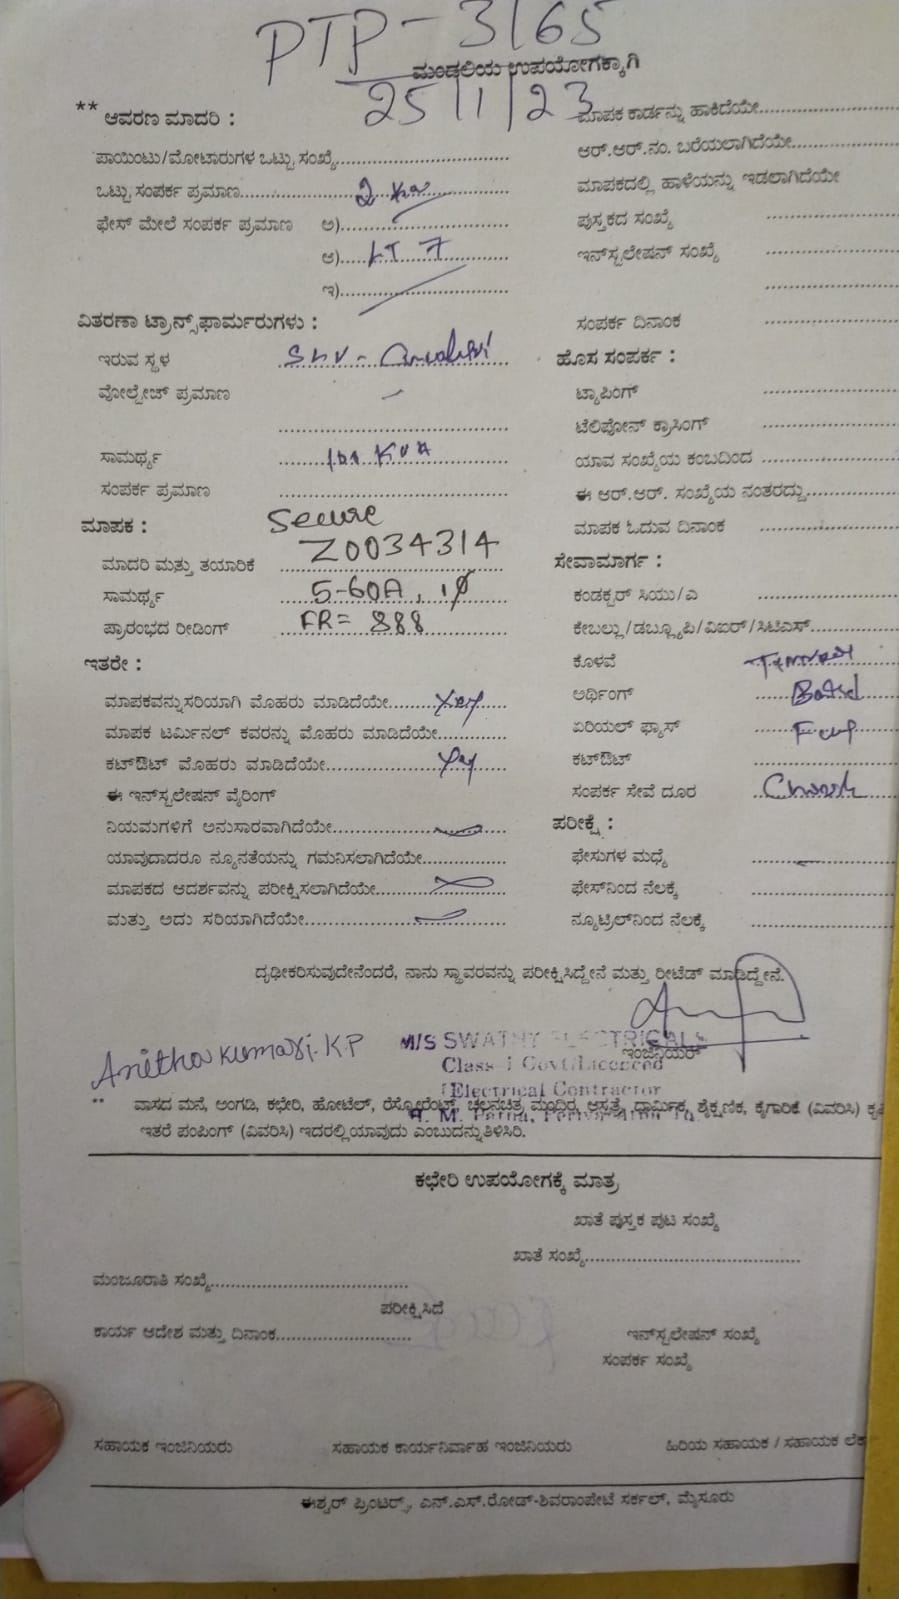 PTP - 3165
ಮಂಡಲಿಯ ಉಪಯೋಗಕ್ಕಾಗಿ
25/1/23
** ಆವರಣ ಮಾದರಿ :
ಪಾಯಿಂಟು/ಮೋಟಾರುಗಳ ಒಟ್ಟು ಸಂಖ್ಯೆ
ಒಟ್ಟು ಸಂಪರ್ಕ ಪ್ರಮಾಣ 2 kw
ಫೇಸ್ ಮೇಲೆ ಸಂಪರ್ಕ ಪ್ರಮಾಣ ಅ)
ಆ) LT 7
ಇ)
ವಿತರಣಾ ಟ್ರಾನ್ಸ್‌ಫಾರ್ಮರುಗಳು :
ಇರುವ ಸ್ಥಳ
ವೋಲ್ಟೇಜ್ ಪ್ರಮಾಣ
ಸಾಮರ್ಥ್ಯ KVA
ಸಂಪರ್ಕ ಪ್ರಮಾಣ
ಮಾಪಕ : Secure
ಮಾದರಿ ಮತ್ತು ತಯಾರಿಕೆ Z0034314
ಸಾಮರ್ಥ್ಯ 5-60A, 1∅
ಪ್ರಾರಂಭದ ರೀಡಿಂಗ್ FR= 888
ಇತರೇ :
ಮಾಪಕವನ್ನು ಸರಿಯಾಗಿ ಮೊಹರು ಮಾಡಿದೆಯೇ Yes
ಮಾಪಕ ಟರ್ಮಿನಲ್ ಕವರನ್ನು ಮೊಹರು ಮಾಡಿದೆಯೇ
ಕಟ್‌ಔಟ್ ಮೊಹರು ಮಾಡಿದೆಯೇ Yes
ಈ ಇನ್‌ಸ್ಟಲೇಷನ್ ವೈರಿಂಗ್
ನಿಯಮಗಳಿಗೆ ಅನುಸಾರವಾಗಿದೆಯೇ
ಯಾವುದಾದರೂ ನ್ಯೂನತೆಯನ್ನು ಗಮನಿಸಲಾಗಿದೆಯೇ
ಮಾಪಕದ ಆದರ್ಶವನ್ನು ಪರೀಕ್ಷಿಸಲಾಗಿದೆಯೇ
ಮತ್ತು ಅದು ಸರಿಯಾಗಿದೆಯೇ
ಮಾಪಕ ಕಾರ್ಡನ್ನು ಹಾಕಿದೆಯೇ
ಆರ್.ಆರ್.ನಂ. ಬರೆಯಲಾಗಿದೆಯೇ
ಮಾಪಕದಲ್ಲಿ ಹಾಳೆಯನ್ನು ಇಡಲಾಗಿದೆಯೇ
ಪುಸ್ತಕದ ಸಂಖ್ಯೆ
ಇನ್‌ಸ್ಟಲೇಷನ್ ಸಂಖ್ಯೆ
ಸಂಪರ್ಕ ದಿನಾಂಕ
ಹೊಸ ಸಂಪರ್ಕ :
ಟ್ಯಾಪಿಂಗ್
ಟೆಲಿಪೋನ್ ಕ್ರಾಸಿಂಗ್
ಯಾವ ಸಂಖ್ಯೆಯ ಕಂಬದಿಂದ
ಈ ಆರ್.ಆರ್. ಸಂಖ್ಯೆಯ ನಂತರದ್ದು
ಮಾಪಕ ಓದುವ ದಿನಾಂಕ
ಸೇವಾಮಾರ್ಗ :
ಕಂಡಕ್ಟರ್ ಸಿಯು/ಎ
ಕೇಬಲ್ಲು/ಡಬ್ಲ್ಯೂಪಿ/ವಿಐಆರ್/ಸಿಟಿಎಸ್
ಕೊಳವೆ
ಅರ್ಥಿಂಗ್
ಏರಿಯಲ್ ಫ್ಯೂಸ್
ಕಟ್‌ಔಟ್
ಸಂಪರ್ಕ ಸೇವೆ ದೂರ
ಪರೀಕ್ಷೆ :
ಫೇಸುಗಳ ಮಧ್ಯೆ
ಫೇಸ್‌ನಿಂದ ನೆಲಕ್ಕೆ
ನ್ಯೂಟ್ರಿಲ್‌ನಿಂದ ನೆಲಕ್ಕೆ
ದೃಢೀಕರಿಸುವುದೇನೆಂದರೆ, ನಾನು ಸ್ಥಾವರವನ್ನು ಪರೀಕ್ಷಿಸಿದ್ದೇನೆ ಮತ್ತು ರೀಟೆಡ್ ಮಾಡಿದ್ದೇನೆ.
ಇಂಜಿನಿಯರ್
Anithakumari.K.P
M/S SWATHY ELECTRICALS
Class-I Govt Licenced
Electrical Contractor
** ವಾಸದ ಮನೆ, ಅಂಗಡಿ, ಕಛೇರಿ, ಹೋಟೆಲ್, ರೆಸ್ಟೋರೆಂಟ್, ಚಲನಚಿತ್ರ ಮಂದಿರ, ಆಸ್ಪತ್ರೆ, ಧಾರ್ಮಿಕ, ಶೈಕ್ಷಣಿಕ, ಕೈಗಾರಿಕೆ (ವಿವರಿಸಿ)
ಇತರೆ ಪಂಪಿಂಗ್ (ವಿವರಿಸಿ) ಇದರಲ್ಲಿ ಯಾವುದು ಎಂಬುದನ್ನು ತಿಳಿಸಿರಿ.
ಕಛೇರಿ ಉಪಯೋಗಕ್ಕೆ ಮಾತ್ರ
ಖಾತೆ ಪುಸ್ತಕ ಪುಟ ಸಂಖ್ಯೆ
ಖಾತೆ ಸಂಖ್ಯೆ
ಮಂಜೂರಾತಿ ಸಂಖ್ಯೆ
ಪರೀಕ್ಷಿಸಿದೆ
ಕಾರ್ಯ ಆದೇಶ ಮತ್ತು ದಿನಾಂಕ
ಇನ್‌ಸ್ಟಲೇಷನ್ ಸಂಖ್ಯೆ
ಸಂಪರ್ಕ ಸಂಖ್ಯೆ
ಸಹಾಯಕ ಇಂಜಿನಿಯರು ಸಹಾಯಕ ಕಾರ್ಯನಿರ್ವಾಹ ಇಂಜಿನಿಯರು ಹಿರಿಯ ಸಹಾಯಕ / ಸಹಾಯಕ
ಈಶ್ವರ್ ಪ್ರಿಂಟರ್‍ಸ್, ಎನ್.ಎಸ್.ರೋಡ್-ಶಿವರಾಂಪೇಟೆ ಸರ್ಕಲ್, ಮೈಸೂರು